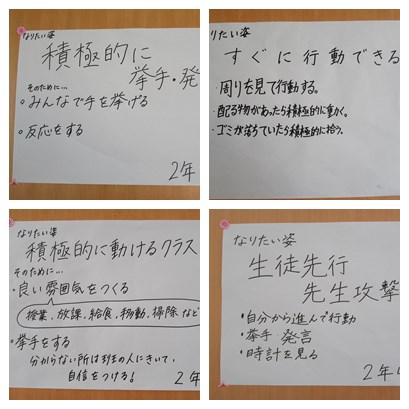 なりたい姿
積極的に
挙手・発
そのために…
・みんなで手を挙げる
・反応をする
2年
りたい姿
すぐに行動できる
・周りを見て行動する。
・配る物があったら積極的に動く。
・ゴミが落ちていたら積極的に拾う。
なりたい姿
積極的に動けるクラス
そのために…
・良い雰囲気をつくる
授業、放課、給食、移動、掃除など
・挙手をする
分からない所は
の人にきいて、
自信をつける!
2年
なりたい姿
生徒先行
先生攻撃
・自分から進んで行動
・挙手 発言
・時計を見る
2年